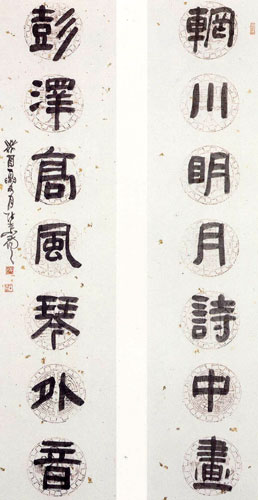 輞川明月詩中畫
彭澤高風琴外音
癸酉